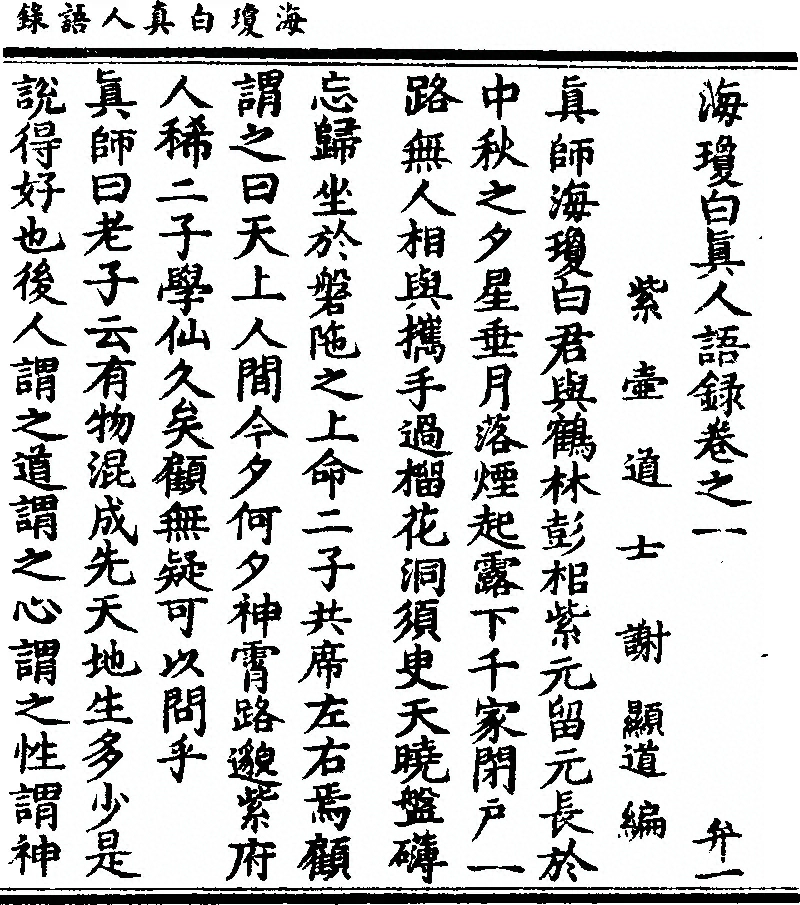 海瓊白真人語錄
海瓊白眞人語録卷之一 弁一
紫壺道士謝顯道編
眞師海瓊白君與鶴林彭耜紫元留元長於
中秋之夕星垂月落煙起露下千家閉户一
路無人相與攜手過榴花洞須臾天曉盤礴
忘歸坐於磐陁之上命二子共席左右焉顧
謂之曰天上人間今夕何夕神霄路邈紫府
人稀二子學仙久矣顧無疑可以問乎
眞師曰老子云有物混成先天地生多少是
說得好也後人謂之道謂之心謂之性謂神